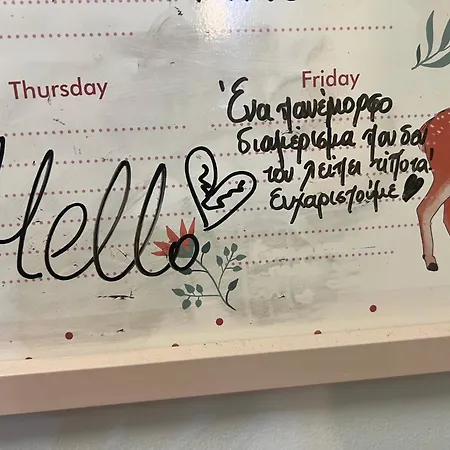 Thursday
Friday
Ένα πανέμορφο
διαμέρισμα που δεν
του λείπει τίποτα!
Ευχαριστούμε
Hello